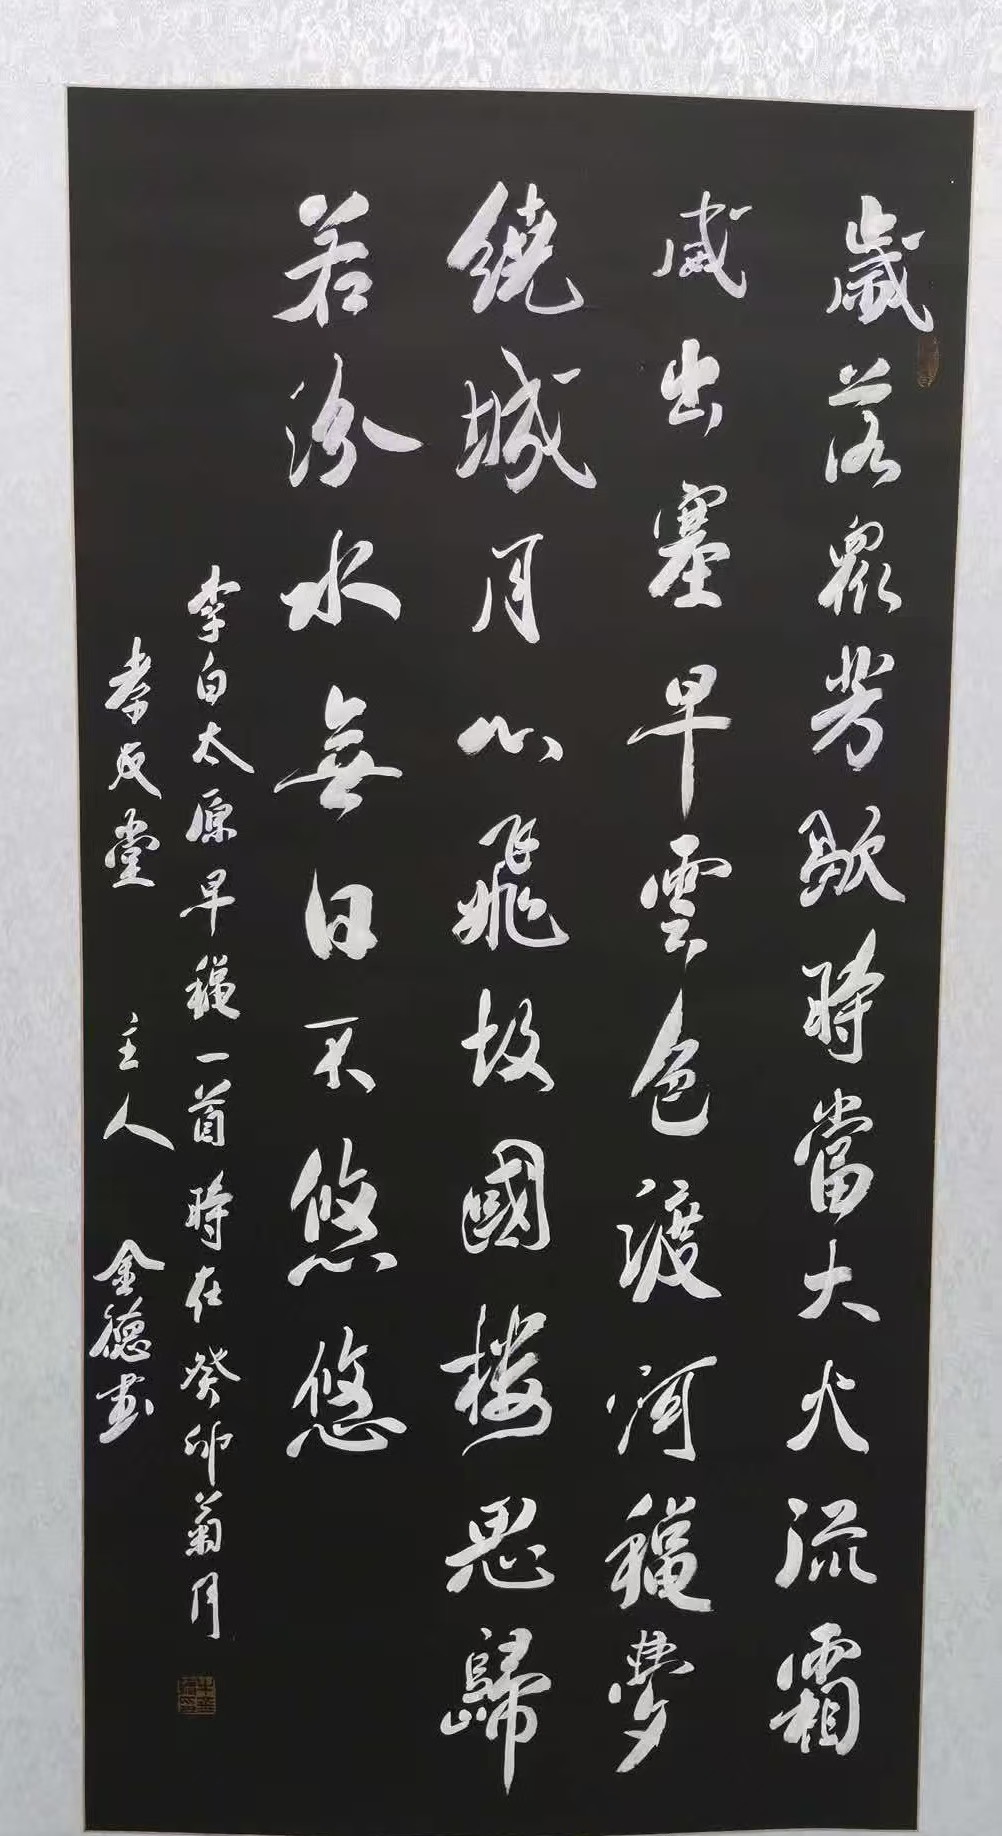 歲落衆芳歇時當大火流霜
威出塞早雲色渡河穐夢
繞城月心飛故國樓思歸
若汾水無日不悠悠
李白太原早穐一首時在癸卯菊月
孝友堂主人金德書